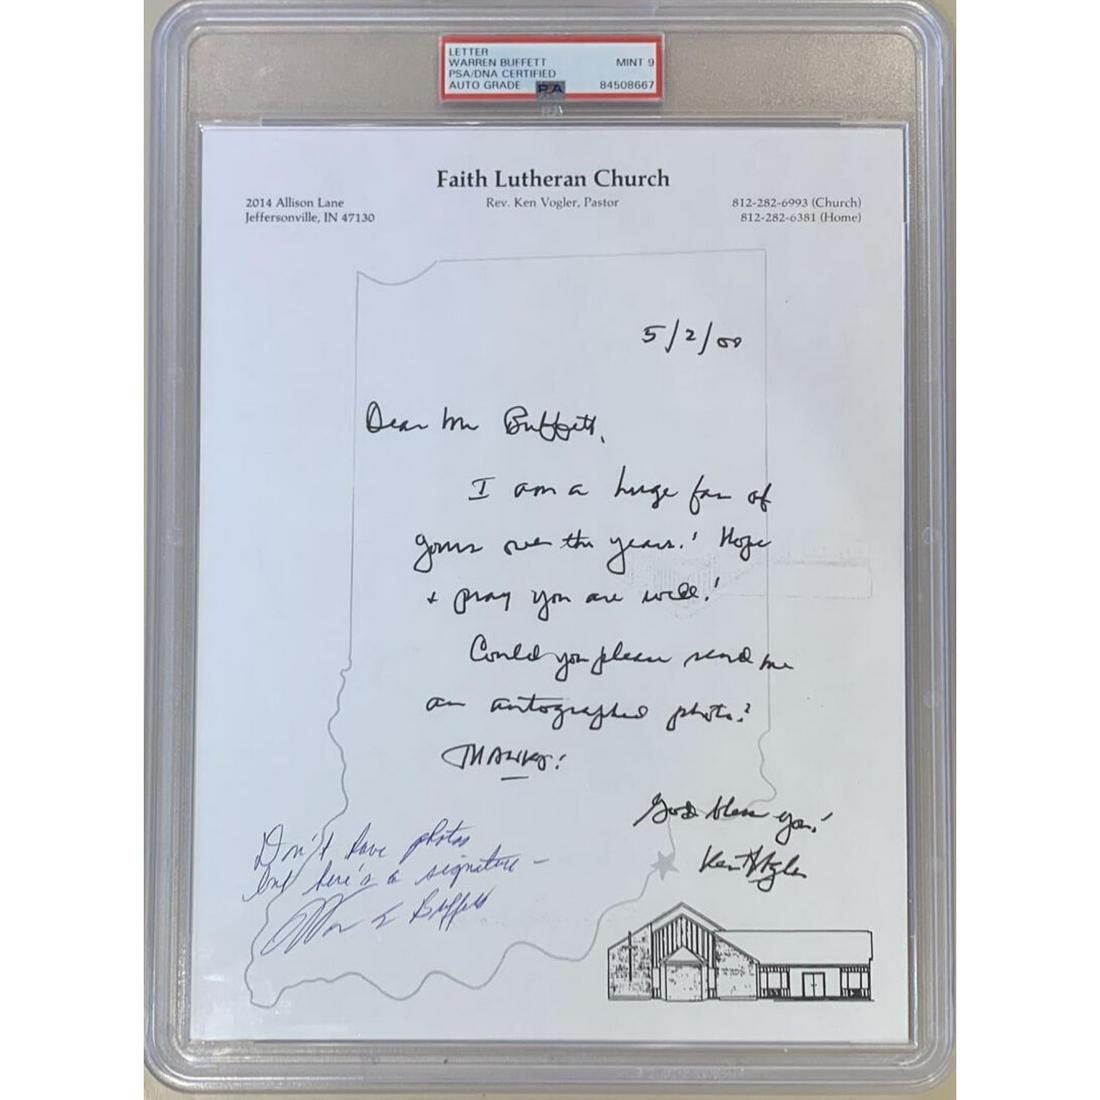 LETTER
WARREN BUFFETT MINT 9
PSA/DNA CERTIFIED
AUTO GRADE PSA 84508667
Faith Lutheran Church
2014 Allison Lane Rev. Ken Vogler, Pastor 812-282-6993 (Church)
Jeffersonville, IN 47130 812-282-6381 (Home)
5/2/00
Dear Mr Buffett,
I am a huge fan of
yours over the years! Hope
+ pray you are well!
Could you please send me
an autographed photo?
THANKS!
God bless you!
Ken Vogler
Don't have photos
but here's a signature -
Warren E Buffett